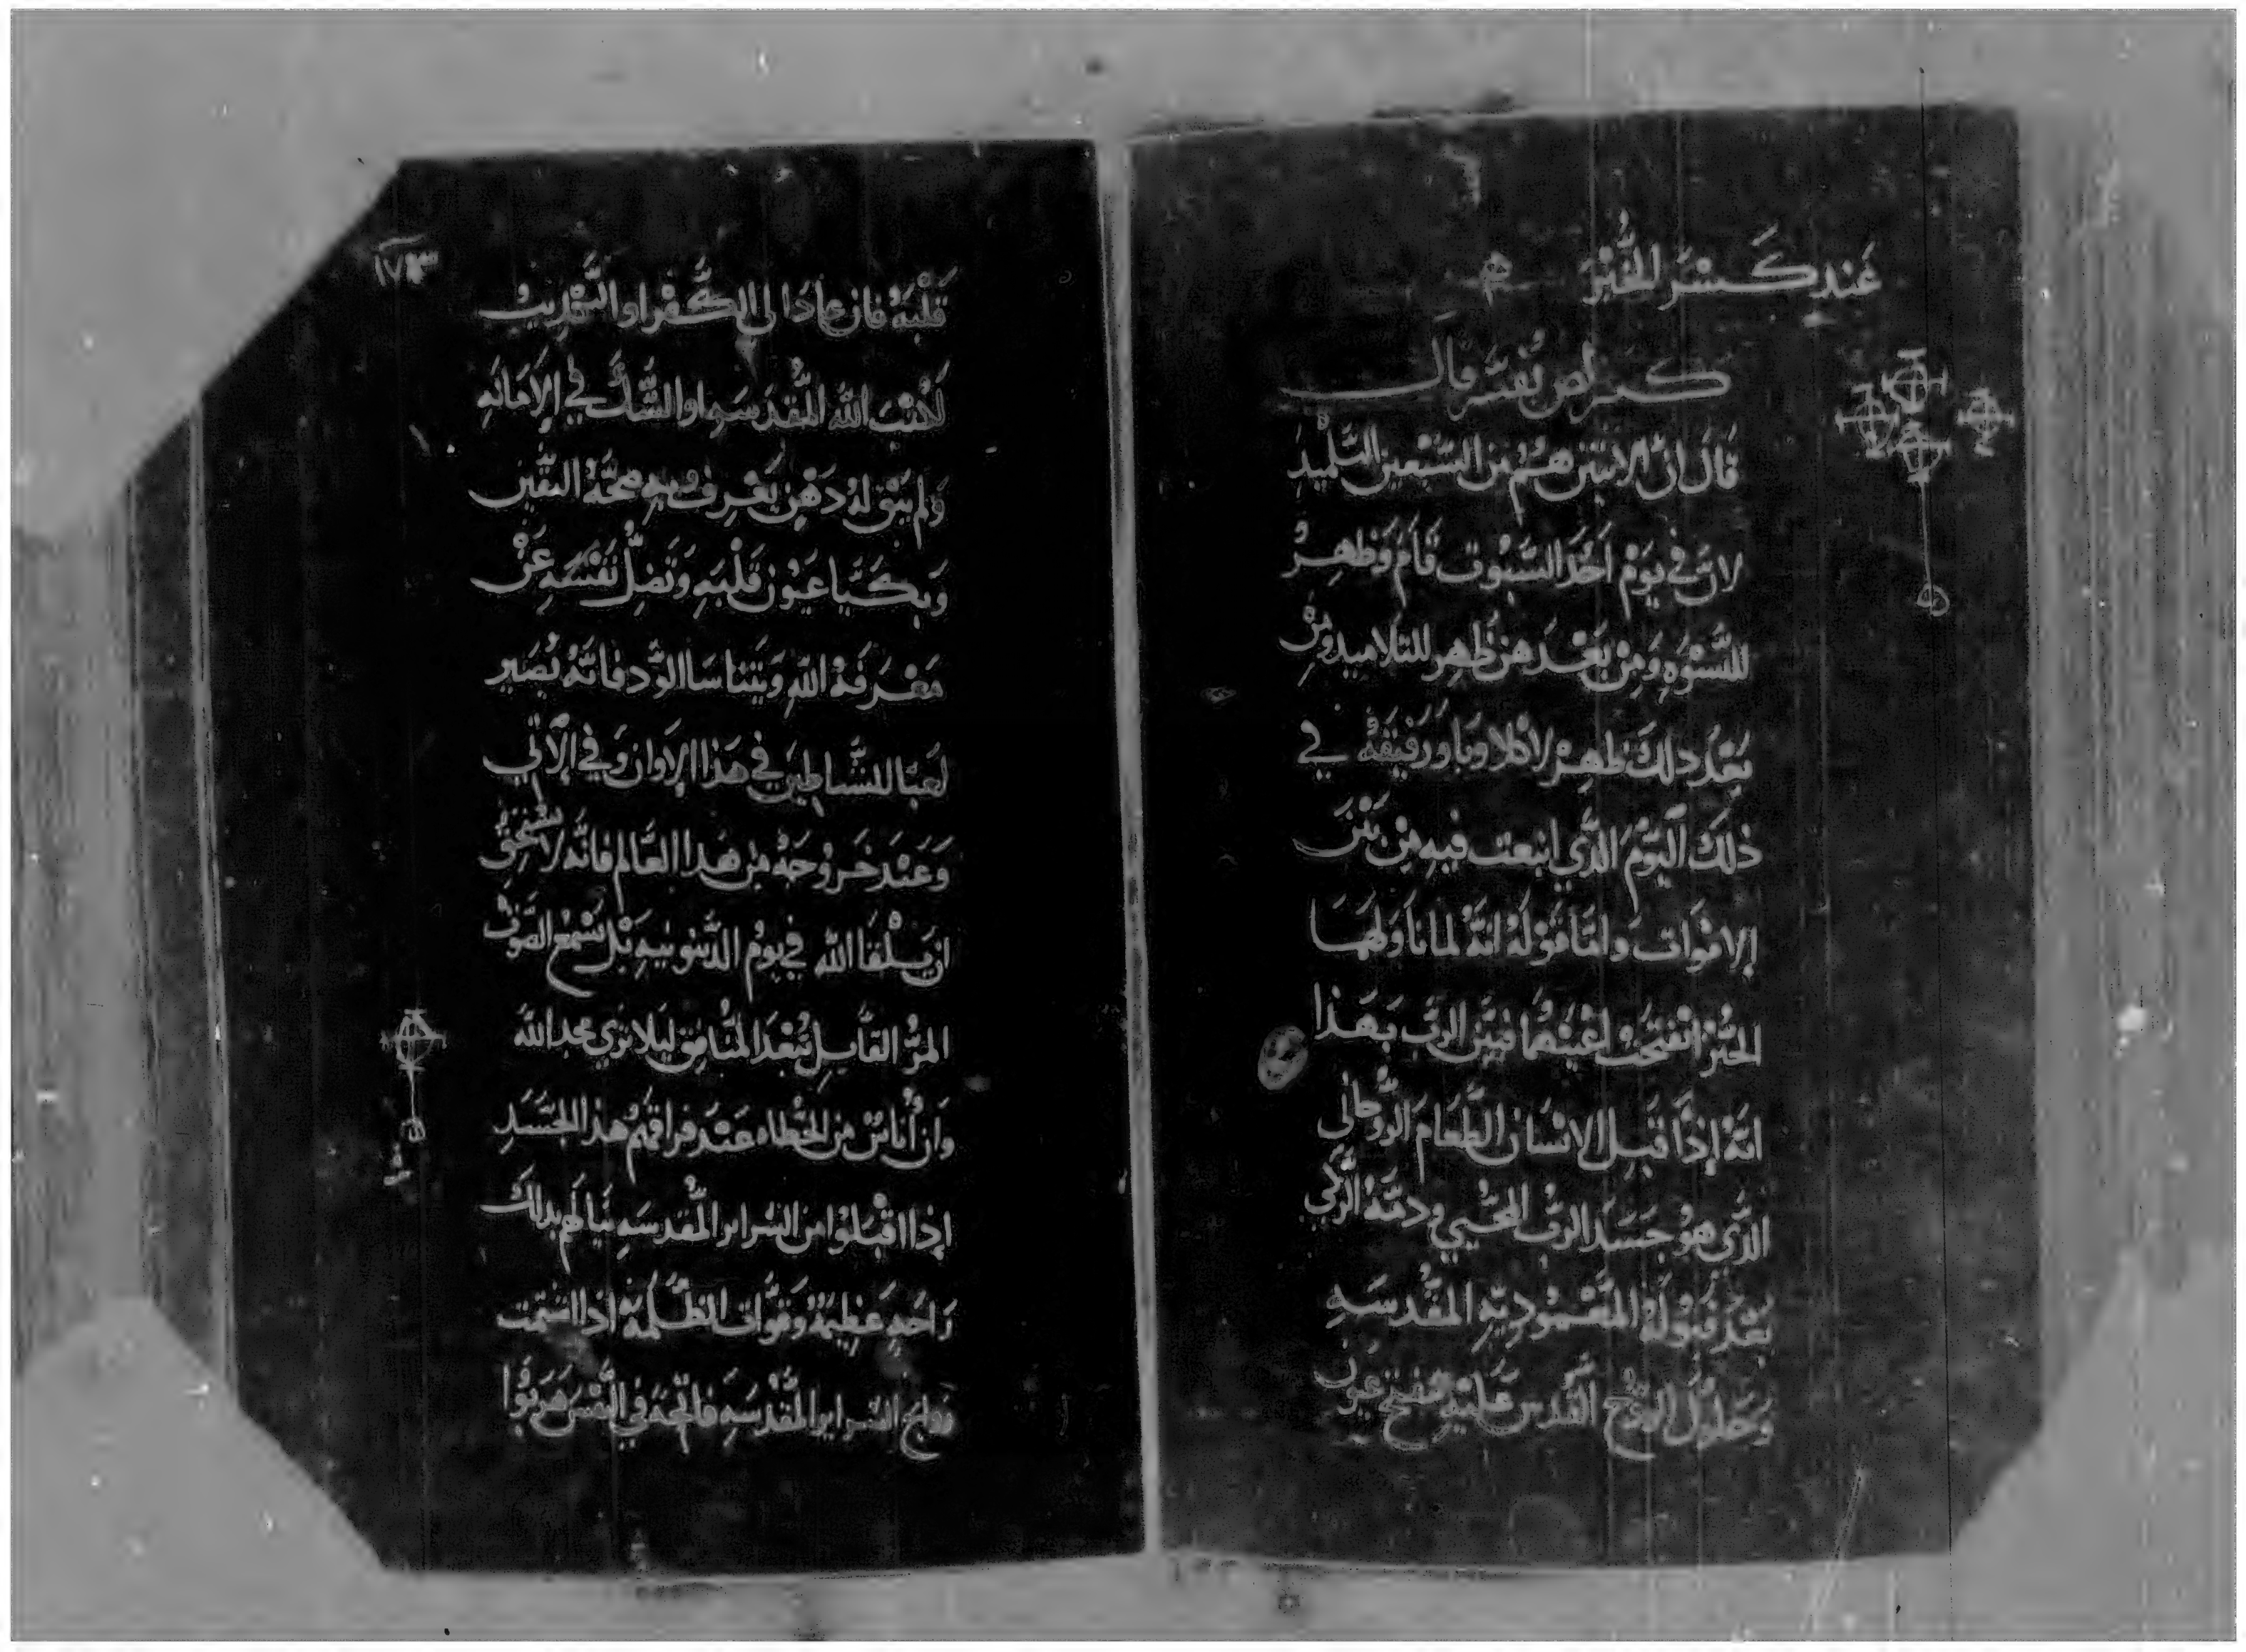 عَندِ كَسْرَ الخُبْزَ
كيرلص نفسه قال
قَالَ انَّ الاثنَين هُم مَن السَّبْعِين التَّلْمِيدِ
لانَّ في يَوْمَ اَحَد السَّبوت قَامَ وَظهِرُ
للنَّسْوَه وَمِنْ بَعْدَهنَ ظَهِر للتلاميد ومِن
بَعْدَ دلكَ ظهِرَ لاكلاوبا وَرَفيقَهُ في
ذلكَ اليَومَ الدَّي انبعت فيهِ مِن بَيْن
الامْوَات وامَّا قَوْلهُ انَهُ لما ناوَلهَمَا
الخُبْز انفتَحَتْ اعْينهُمَا فبَيَن الربَّ بهَذا
انهُ إذَا قَبِل الانْسَان الطَّعَامَ الرُّوحَاني
الدَّي هوُ جَسَد الربَّ المحْيي ودمَهُ الزَّكي
بَعْدَ قَبوُلهُ المَعْمُودِيّهِ المقْدسَهِ
وَحلوُلَ الروُحَ القُدس عَلَيْهِ تنفتح عيون
١٧٣
قَلْبَهُ فان عادَ الي الكُفْر او التَّجْديف
لَاسْمَ اللَّه المُقَدسَه او الشَّك في الاِمَانَهِ
وَلم يَبْقي لهُ دَهْن يَعْرِف بهِ صحَّهُ اليَقين
وَبكتيا عَيُوْن قَلْبَهِ وَتَضِلَّ نَفْسَهِ عَنْ
مَعْرَفَهْ اللَّهِ وَيَتناسَا الوَّد فانَهُ يُصَير
لعَبَا للشَّياطين في هَذا الاَوَان وَفي الاتي
وَعَندَ خَروُجَهُ مِن هَدا العَالم فانَّهُ لا يسْتحِقُ
ان يَلْقا الله في يوْمُ الدَّينوُنيهِ بَل يَسْمَع الصَوْت
المرُّ القَايلِ تُبعَد المنُافِق ليَلا يرَي مجد اللَّه
وَان أناسٌ من الخطاه عَندَ فراقهمُ هذا الجَسَدِ
إذا اقْبَلوْا من السَراير المُقْدسَهِ يَنَالهم بدلكَ
رَاحَهِ عَظِيمَهْ وَقوَّات الظلمَهْ اذا اشتمت
روايح السَراير المُقْدسَهِ فايحَهَ في النَّفسَ هَربُوا